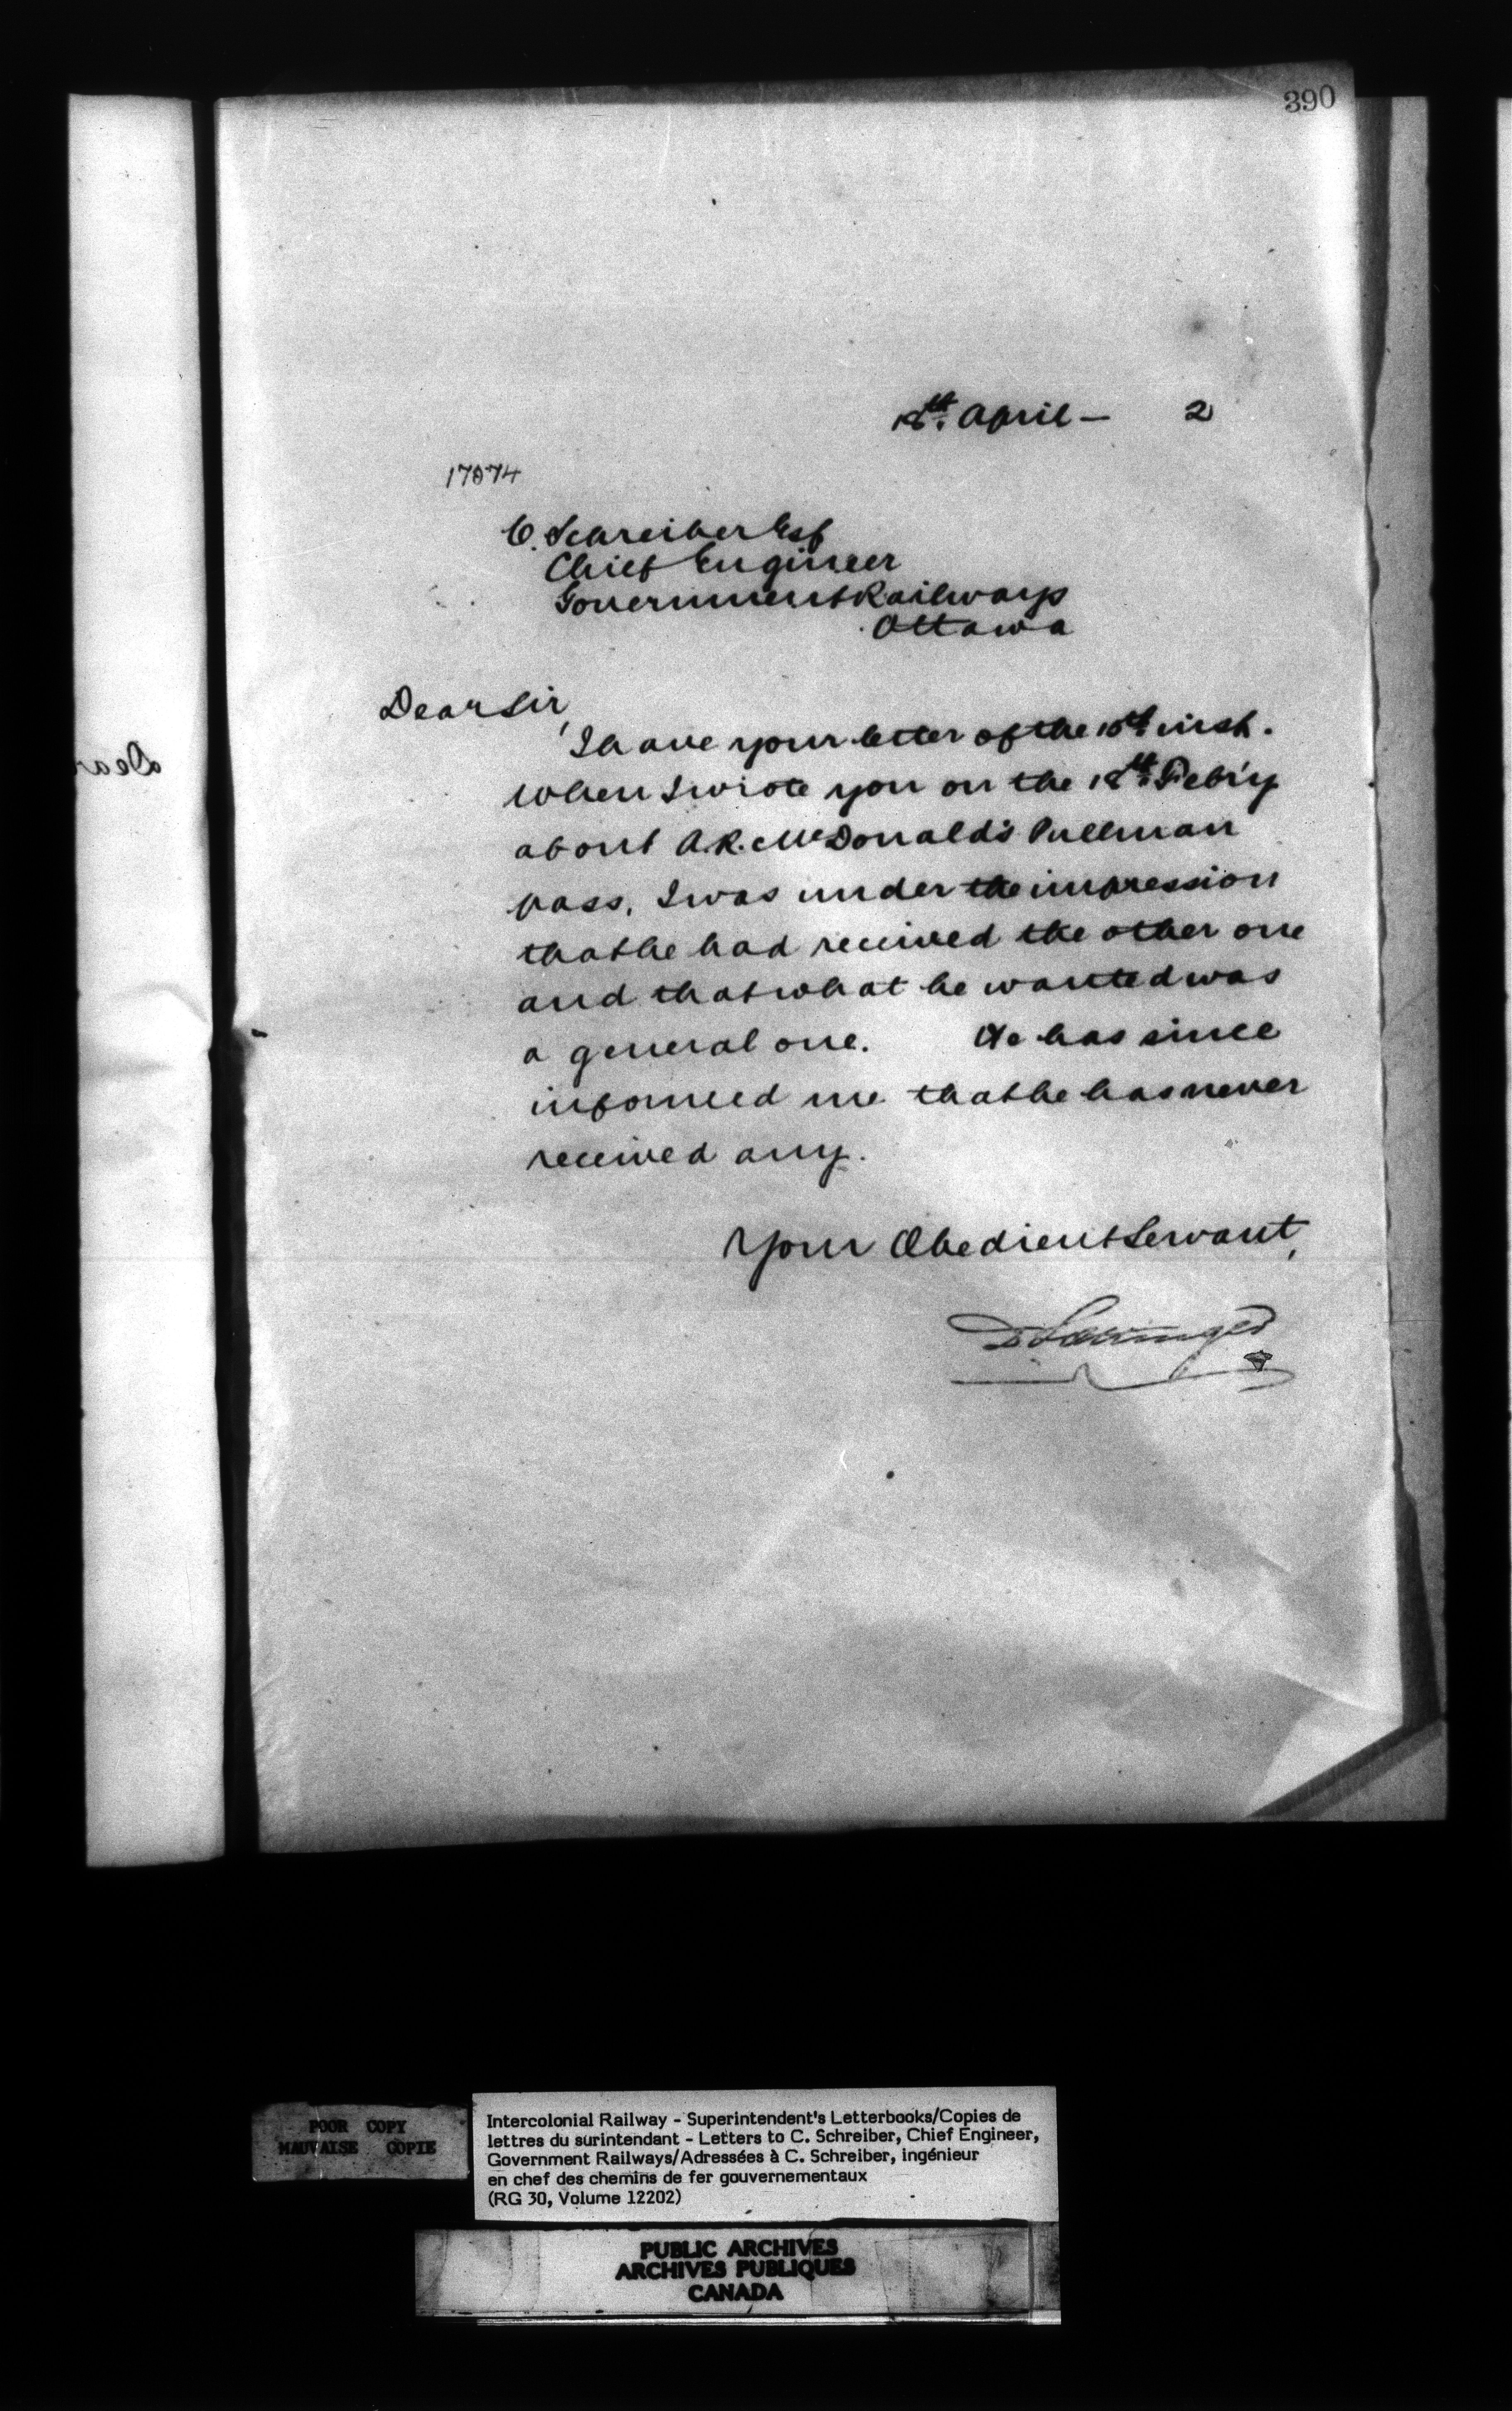 390
18th. April — 2
17874
C. Schreiber Esq
Chief Engineer
Government Railways
Ottawa
Dear Sir,
I have your letter of the 10th inst.
When I wrote you on the 18th. Feb'y
about A.R. McDonald's Pullman
pass, I was under the impression
that he had received the other one
and that what he wanted was
a general one. He has since
informed me that he has never
received any.
Your Obedient Servant,
D Pottinger
Dear
POOR COPY
MAUVAISE COPIE
Intercolonial Railway - Superintendent's Letterbooks/Copies de
lettres du surintendant - Letters to C. Schreiber, Chief Engineer,
Government Railways/Adressées à C. Schreiber, ingénieur
en chef des chemins de fer gouvernementaux
(RG 30, Volume 12202)
PUBLIC ARCHIVES
ARCHIVES PUBLIQUES
CANADA